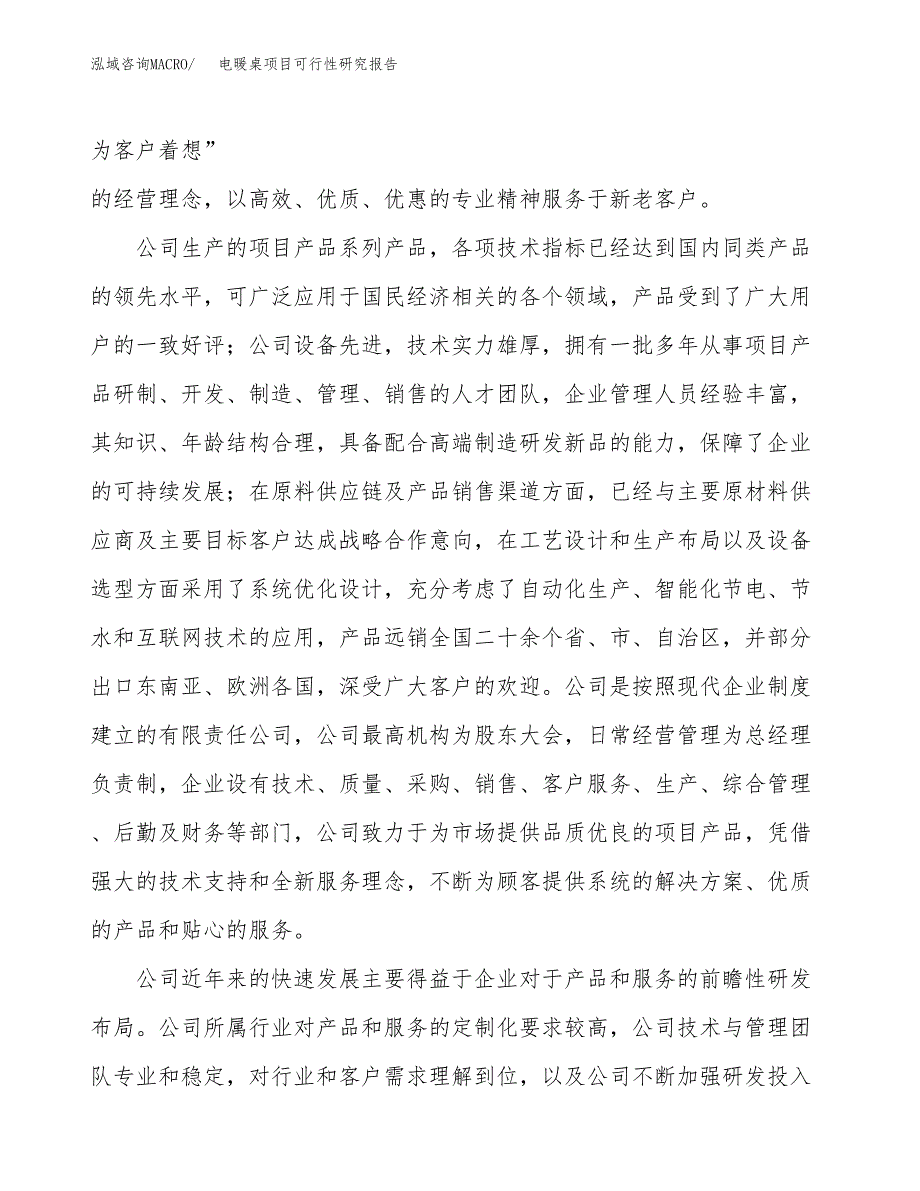 泓域咨询MACRO/ 电暖桌项目可行性研究报告
为客户着想”
的经营理念，以高效、优质、优惠的专业精神服务于新老客户。
公司生产的项目产品系列产品，各项技术指标已经达到国内同类产品
的领先水平，可广泛应用于国民经济相关的各个领域，产品受到了广大用
户的一致好评；公司设备先进，技术实力雄厚，拥有一批多年从事项目产
品研制、开发、制造、管理、销售的人才团队，企业管理人员经验丰富，
其知识、年龄结构合理，具备配合高端制造研发新品的能力，保障了企业
的可持续发展；在原料供应链及产品销售渠道方面，已经与主要原材料供
应商及主要目标客户达成战略合作意向，在工艺设计和生产布局以及设备
选型方面采用了系统优化设计，充分考虑了自动化生产、智能化节电、节
水和互联网技术的应用，产品远销全国二十余个省、市、自治区，并部分
出口东南亚、欧洲各国，深受广大客户的欢迎。公司是按照现代企业制度
建立的有限责任公司，公司最高机构为股东大会，日常经营管理为总经理
负责制，企业设有技术、质量、采购、销售、客户服务、生产、综合管理
、后勤及财务等部门，公司致力于为市场提供品质优良的项目产品，凭借
强大的技术支持和全新服务理念，不断为顾客提供系统的解决方案、优质
的产品和贴心的服务。
公司近年来的快速发展主要得益于企业对于产品和服务的前瞻性研发
布局。公司所属行业对产品和服务的定制化要求较高，公司技术与管理团
队专业和稳定，对行业和客户需求理解到位，以及公司不断加强研发投入